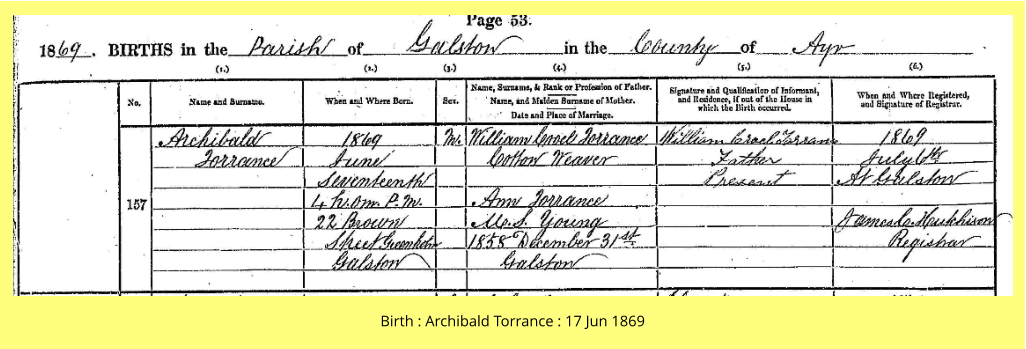 Page 53.
1869. BIRTHS in the Parish of Galston in the County of Ayr
(1.) (2.) (3.) (4.) (5.) (6.)
No.
Name and Surname.
When and Where Born.
Sex.
Name, Surname, & Rank or Profession of Father.
Name, and Maiden Surname of Mother.
Date and Place of Marriage.
Signature and Qualification of Informant,
and Residence, if out of the House in
which the Birth occurred.
When and Where Registered,
and Signature of Registrar.
157
Archibald
Torrance
1869
June
Seventeenth
4 h. 0 m. P.M.
22 Brown
Street Greenholm
Galston
M.
William Croel Torrance
Cotton Weaver
Ann Torrance
M.S. Young
1858 December 31st
Galston
William Croel Torrance
Father
Present
1869
July 6th
At Galston
James C. Hutchison
Registrar
Birth : Archibald Torrance : 17 Jun 1869